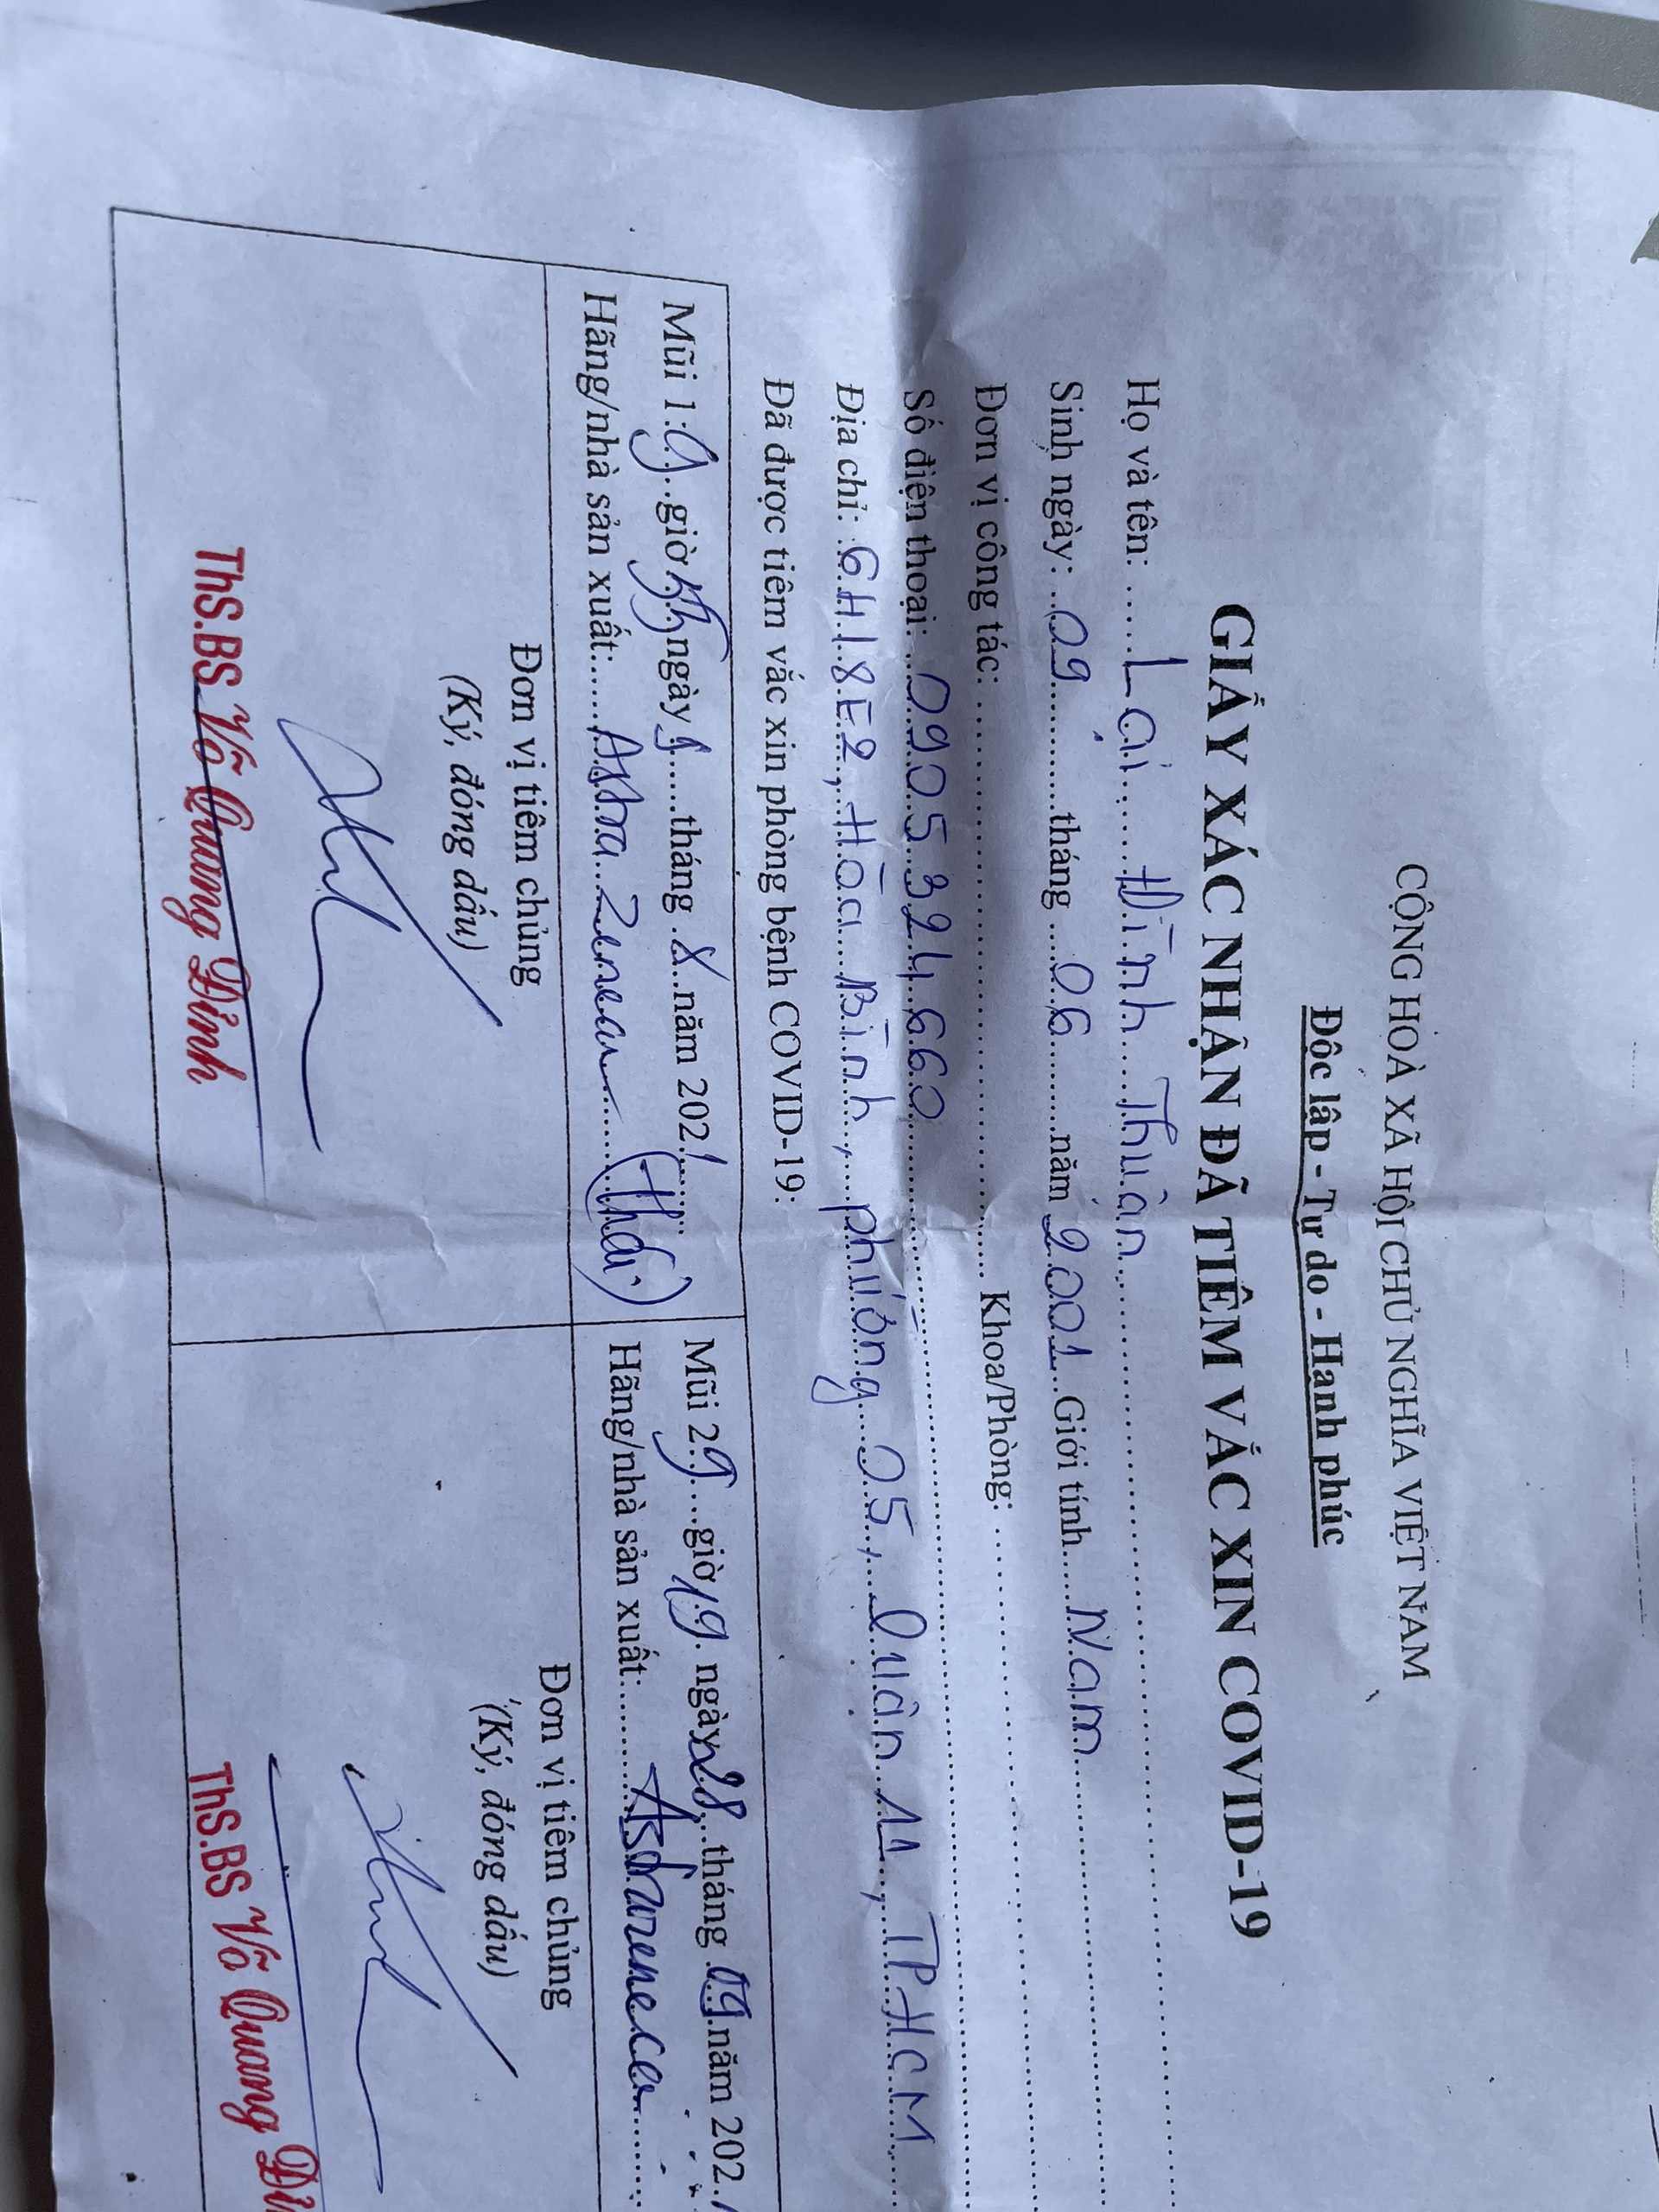 CỘNG HOÀ XÃ HỘI CHỦ NGHĨA VIỆT NAM
Độc lập - Tự do - Hạnh phúc
GIẤY XÁC NHẬN ĐÃ TIÊM VẮC XIN COVID-19
Họ và tên: Lại Đình Thuận
Sinh ngày: 09 tháng 06 năm 2001 Giới tính Nam
Đơn vị công tác: Khoa/Phòng:
Số điện thoại: 0905324660
Địa chỉ: 6H18E2, Hòa Bình, phường 05, Quận 11, TPHCM
Đã được tiêm vắc xin phòng bệnh COVID-19:
Mũi 1: 9 giờ ngày tháng 8 năm 2021
Hãng/nhà sản xuất: Astra Zeneca (Thái)
Đơn vị tiêm chủng
(Ký, đóng dấu)
ThS.BS Võ Quang Đỉnh
Mũi 2 9 giờ 19 ngày 28 tháng 09 năm 202
Hãng/nhà sản xuất: Astrazeneca
Đơn vị tiêm chủng
(Ký, đóng dấu)
ThS.BS Võ Quang